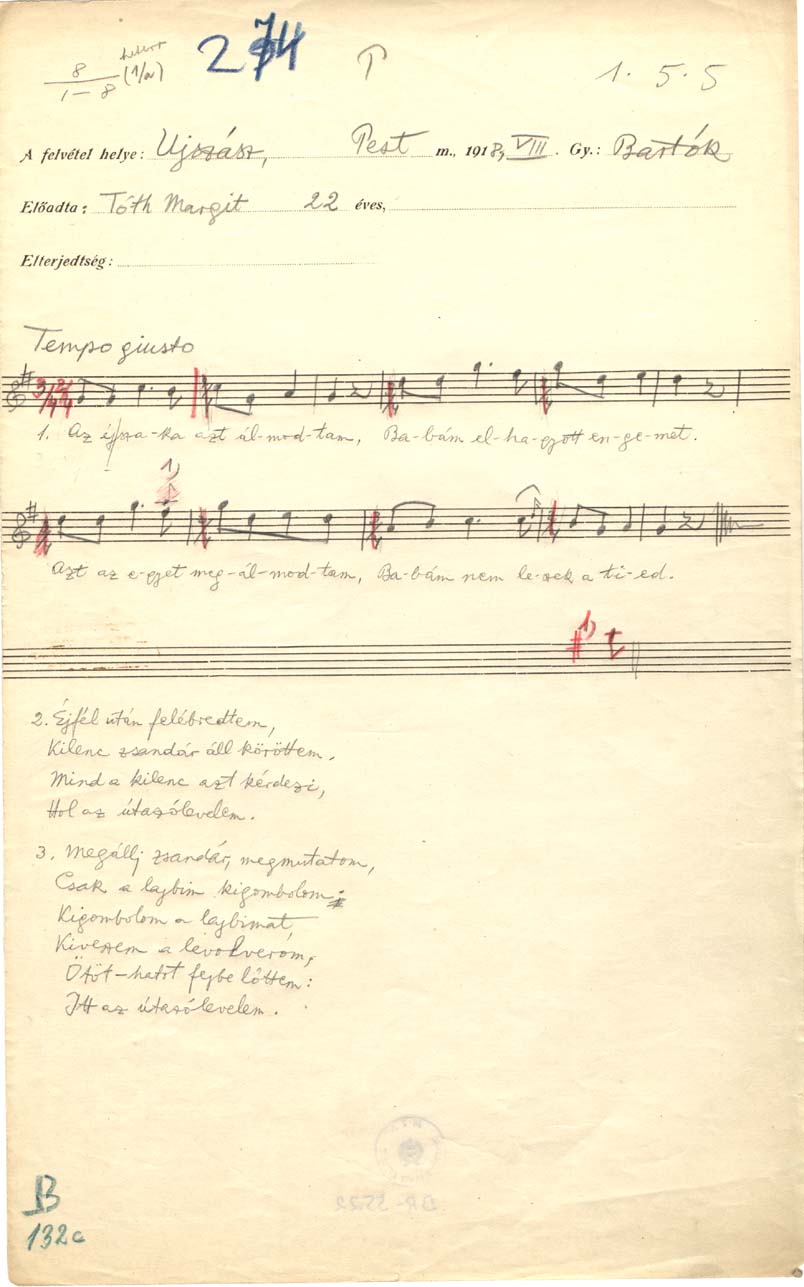 274 1. 5. 5
8
1–8 (1/a)
A felvétel helye: Ujszász, Pest m., 1918, VIII. Gy.: Bartók
Előadta: Tóth Margit 22 éves,
Elterjedtség:
Tempo giusto
3/4 2/4
1. Az éjsza-ka azt ál-mod-tam, Ba-bám el-ha-gyott en-ge-met.
1)
Azt az e-gyet meg-ál-mod-tam, Ba-bám nem le-szek a ti-ed.
1)
2. Éjfél után felébredtem,
Kilenc zsandár áll köröttem.
Mind a kilenc azt kérdezi,
Hol az útazólevelem.
3. Megállj zsandár, megmutatom,
Csak a lajbim kigombolom;
Kigombolom a lajbimat,
Kiveszem a levolverom,
Ötöt-hatot fejbe lőttem:
Itt az útazólevelem.
B
132c